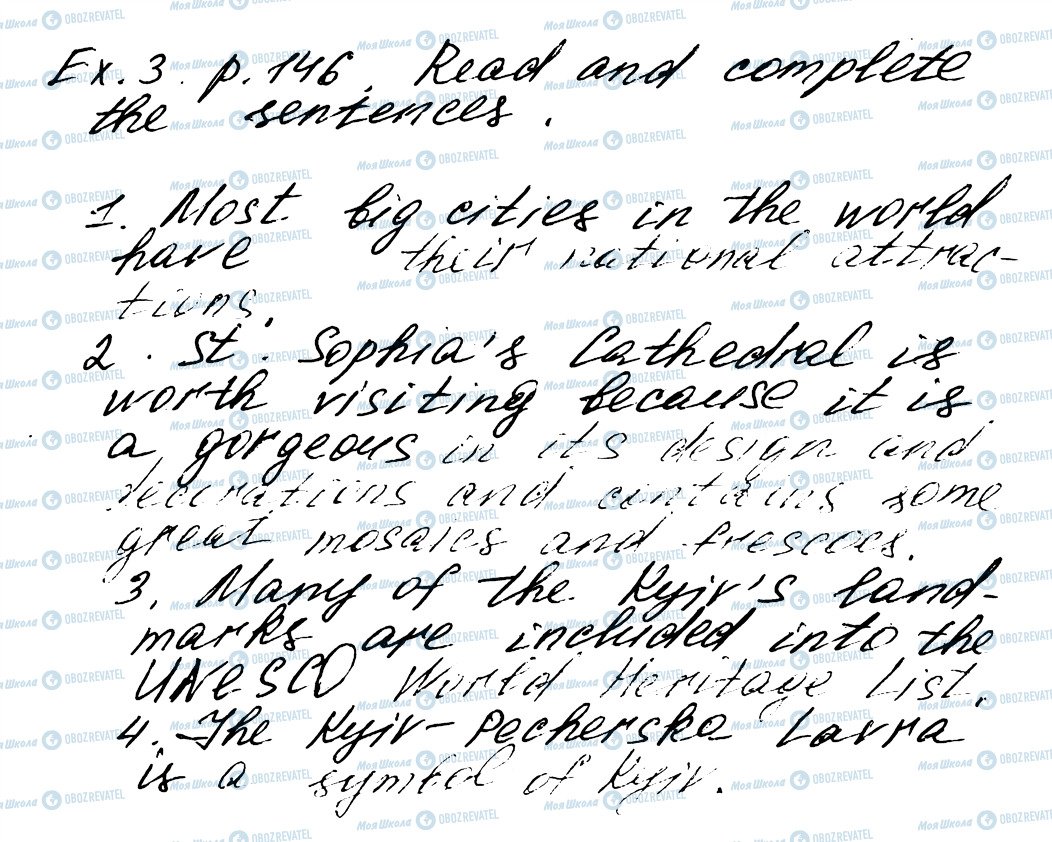 Ex. 3. p. 146. Read and complete
the sentences.
1. Most big cities in the world
have their national attrac-
tions.
2. St. Sophia's Cathedral is
worth visiting because it is
a gorgeous in its design and
decorations and contains some
great mosaics and frescoes.
3. Many of the Kyiv's land-
marks are included into the
UNESCO World Heritage List.
4. The Kyiv-Pecherska Lavra
is a symbol of Kyiv.